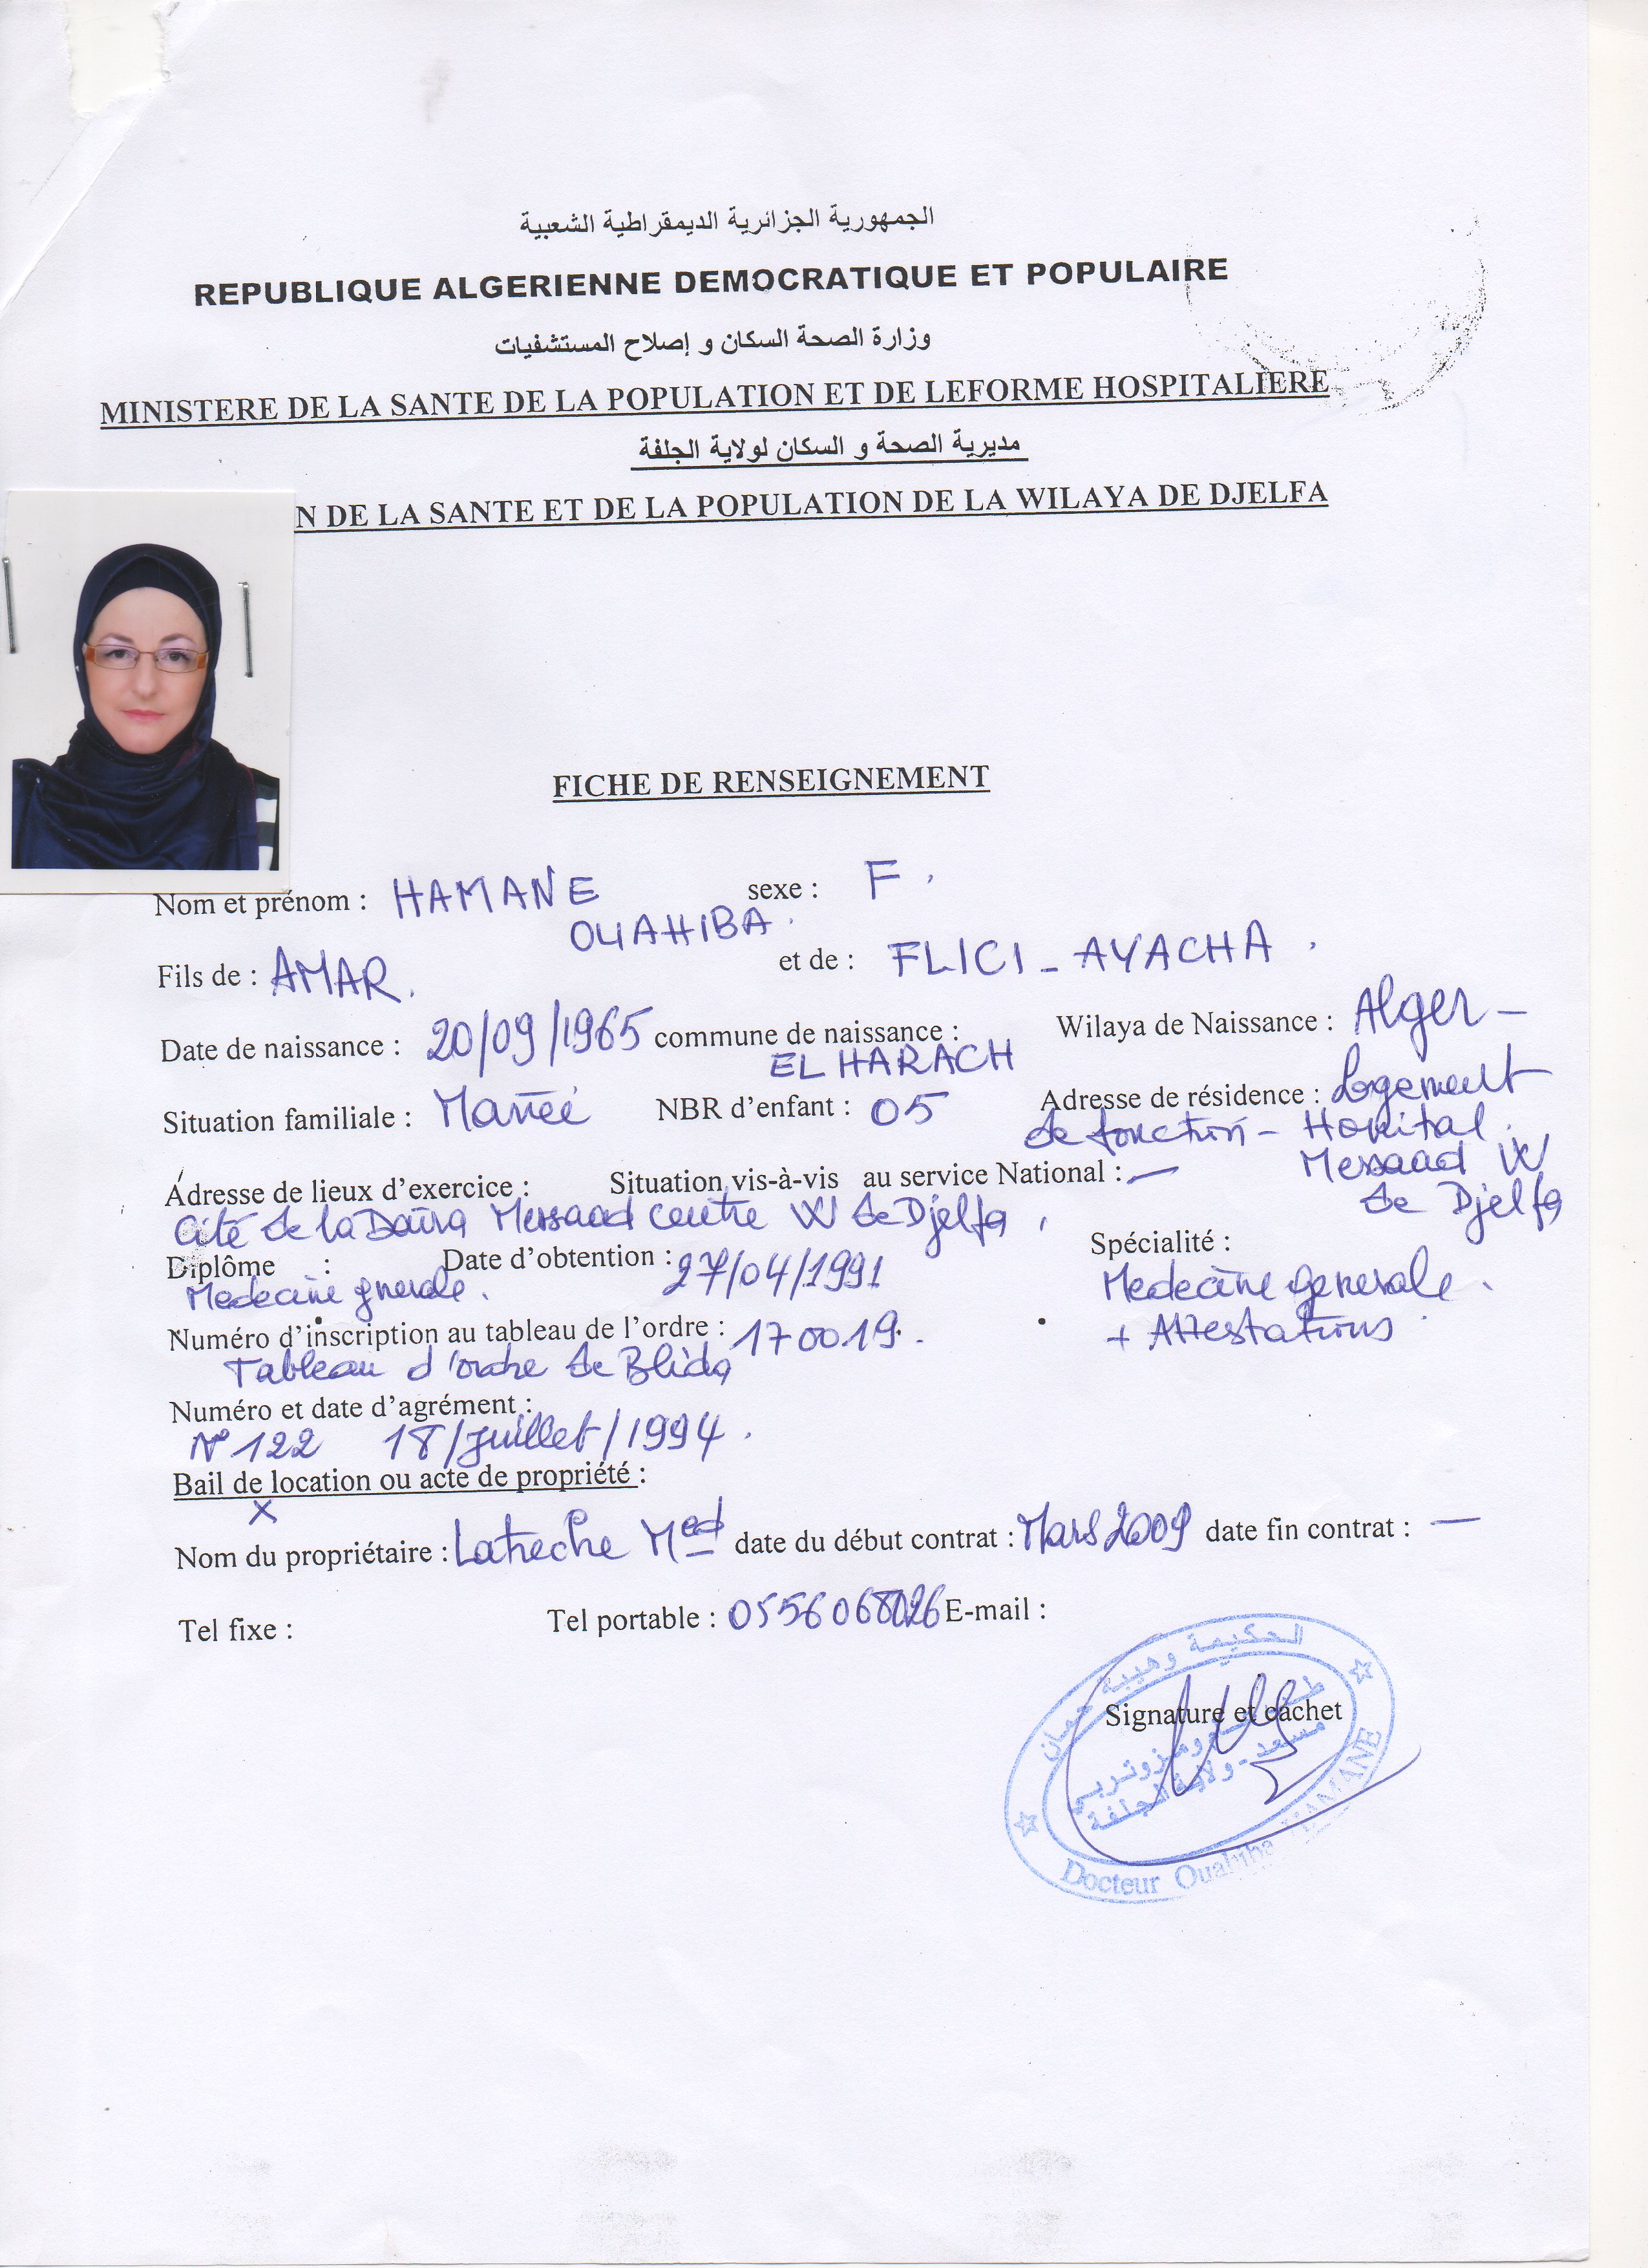 الجمهورية الجزائرية الديمقراطية الشعبية
REPUBLIQUE ALGERIENNE DEMOCRATIQUE ET POPULAIRE
وزارة الصحة السكان و إصلاح المستشفيات
MINISTERE DE LA SANTE DE LA POPULATION ET DE LEFORME HOSPITALIERE
مديرية الصحة و السكان لولاية الجلفة
N DE LA SANTE ET DE LA POPULATION DE LA WILAYA DE DJELFA
FICHE DE RENSEIGNEMENT
Nom et prénom : HAMANE sexe : F.
OUAHIBA.
Fils de : AMAR. et de : FLICI - AYACHA.
Date de naissance : 20/09/1965 commune de naissance : Wilaya de Naissance : Alger -
EL HARACH
Situation familiale : Mariée NBR d'enfant : 05 Adresse de résidence : Logement
de fonction - Hopital.
Adresse de lieux d'exercice : Situation vis-à-vis au service National : — Messaad W
Cité de la Daïra Messaad centre W de Djelfa, de Djelfa
Diplôme : Date d'obtention : 27/04/1991 Spécialité :
Medecine gnerale. Medecine generale.
Numéro d'inscription au tableau de l'ordre : 170019. + Attestations
Tableau d'ordre de Blida
Numéro et date d'agrément :
N° 122 18/Juillet/1994.
Bail de location ou acte de propriété :
X
Nom du propriétaire : Latreche Med date du début contrat : Mars 2009 date fin contrat : —
Tel fixe : Tel portable : 0556068026 E-mail :
الحكيمة وهيبة حمان
Signature et cachet
مسعد - ولاية الجلفة
Docteur Ouahiba HAMANE